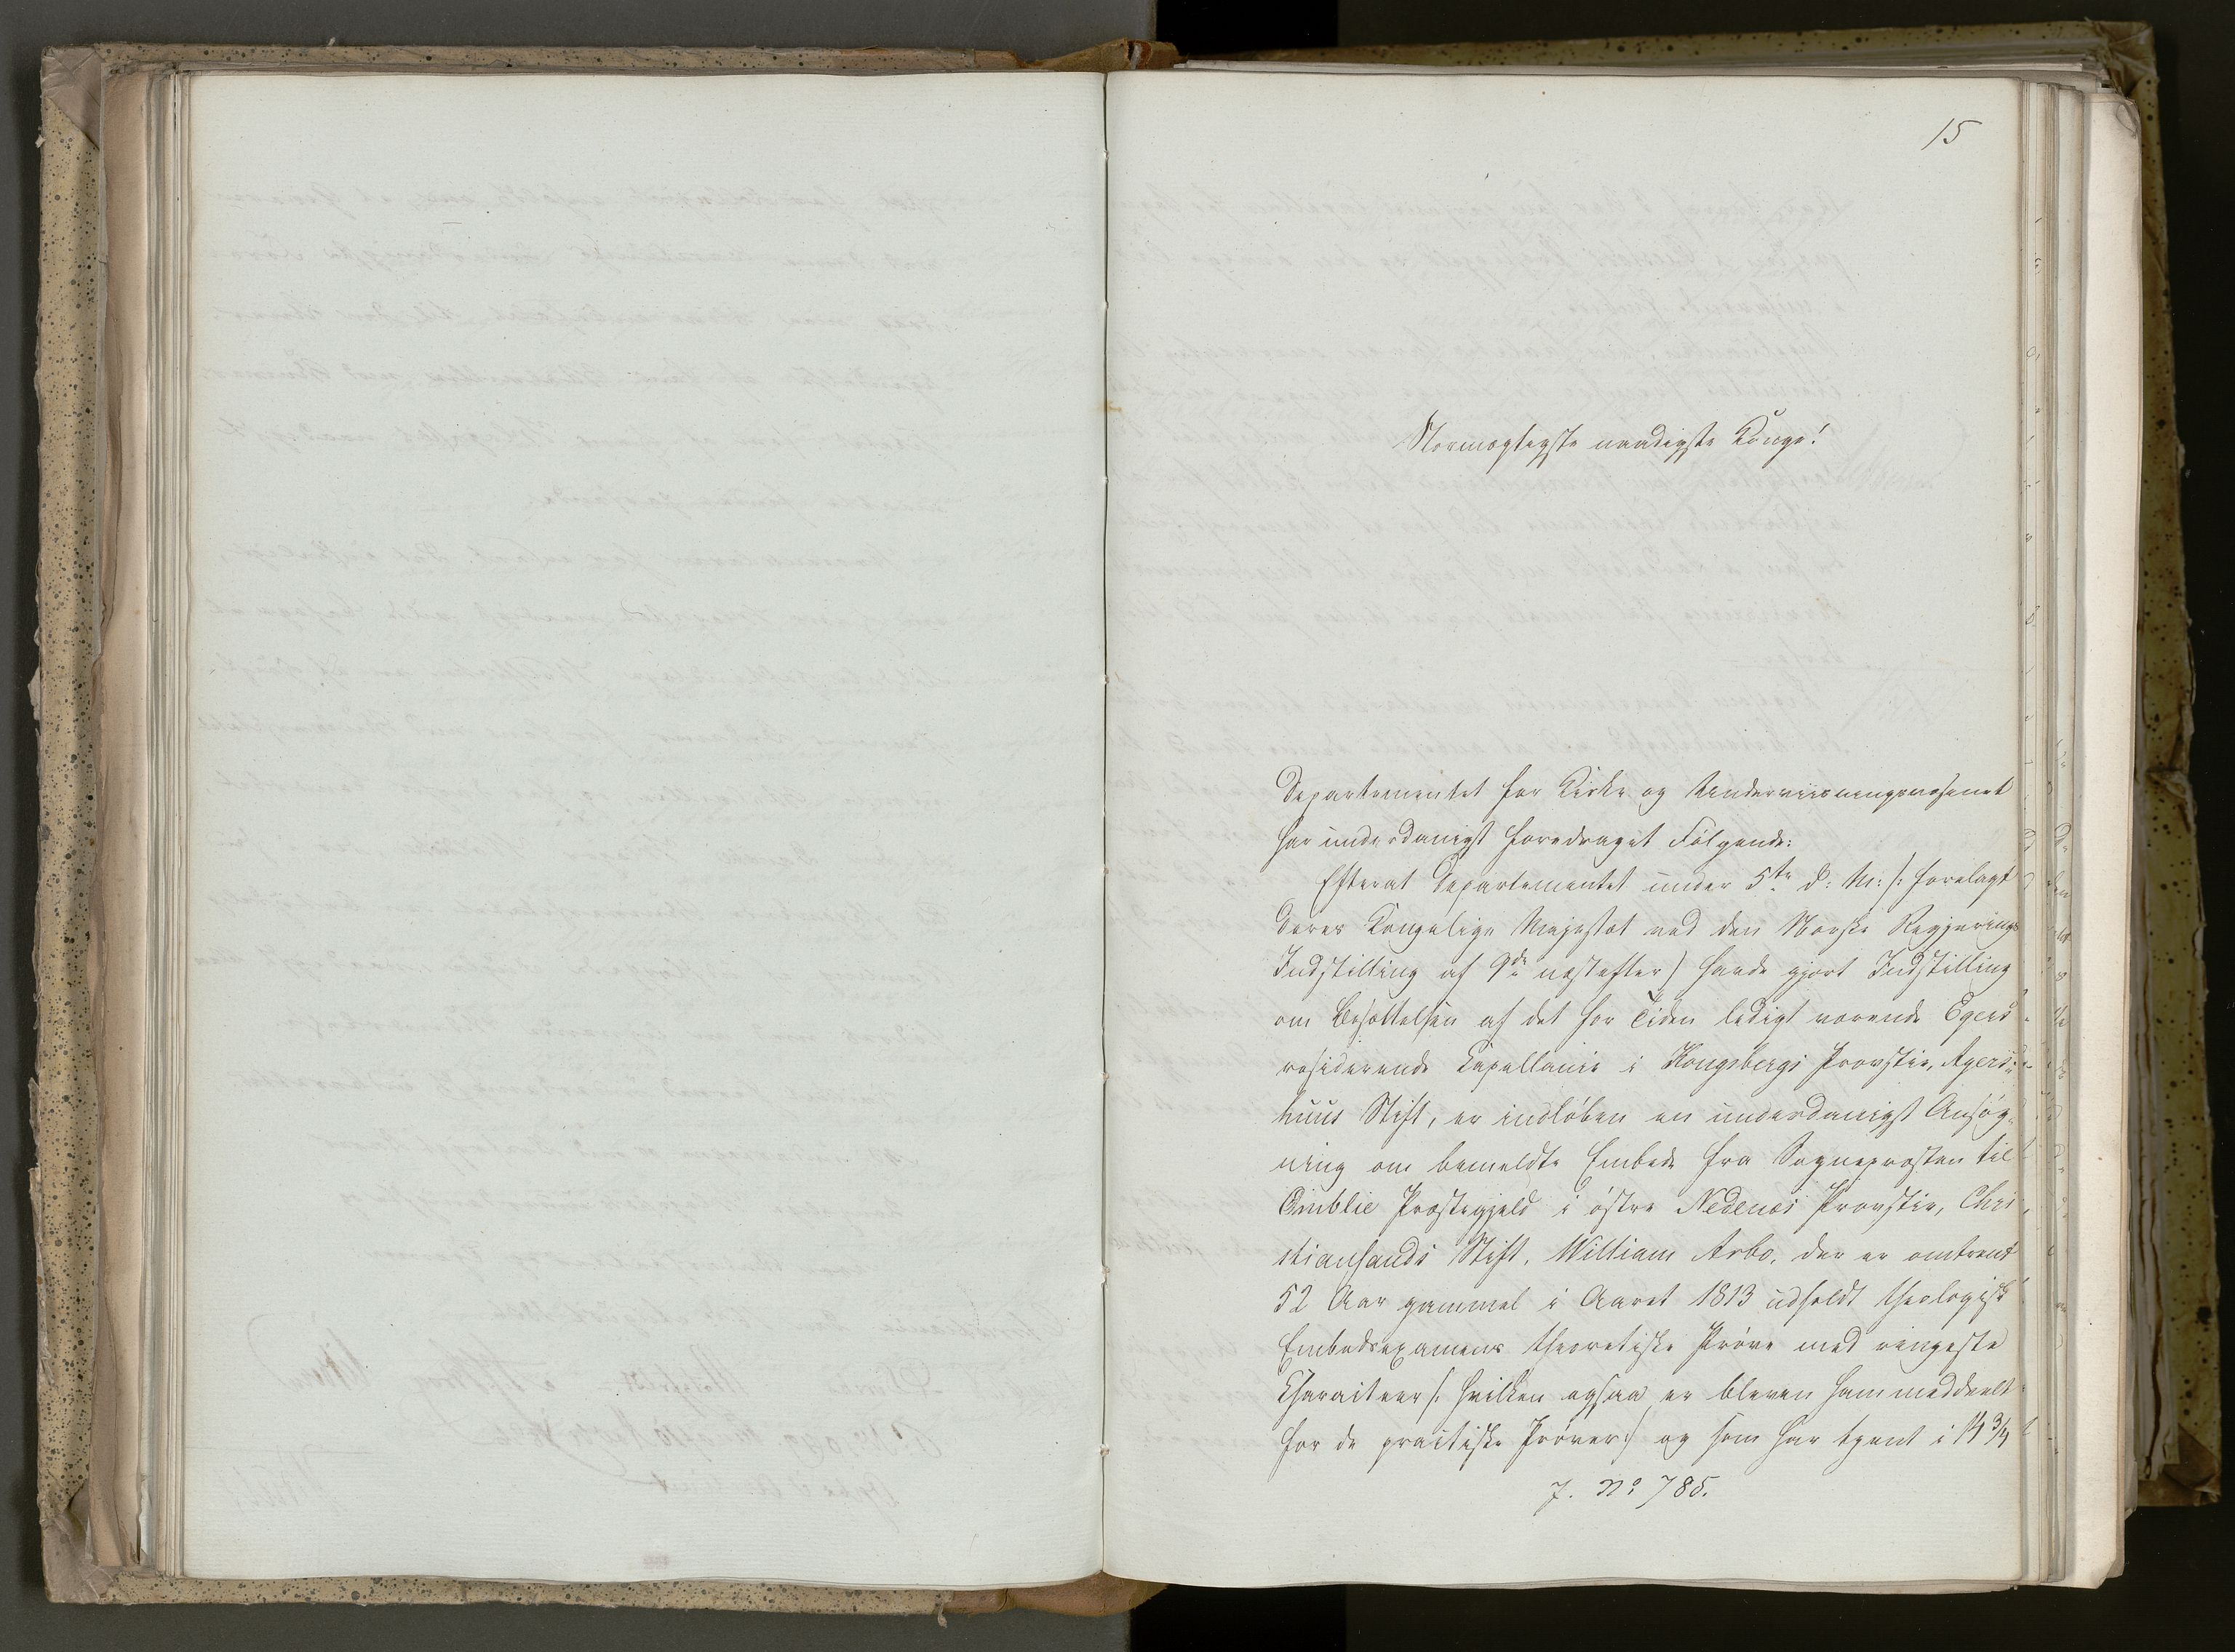 15
Stormægtigste naadigste Konge!
Departementet for Kirke og Underviisningsvæsenet
har underdanigst foredraget Følgende:
Efterat Departementet under 5te d: M: /: forelagt
Deres Kongelige Majestæt ved den Norske Regjerings
Indstilling af 9de næstefter) havde gjort Indstilling
om Besættelsen af det for Tiden ledigt værende Egers
residerende Capellanie i Kongsbergs Provstie, Agers-
huus Stift, er indløben en underdanigst Ansøg-
ning om bemeldte Embede fra Sognepræsten til
Omblie Præstegjeld i østre Nedenæs Provstie, Chri
stiansands Stift, William Arbo, der er omtrent
52 Aar gammel i Aaret 1813 udholdt theologisk
Embedsexamens theoretiske Prøve med ringeste
Charaiteer /: hvilken ogsaa er bleven ham meddeelt
for de practiske Prøver:/ og som har tjent i 14 3/4
J. No 785.